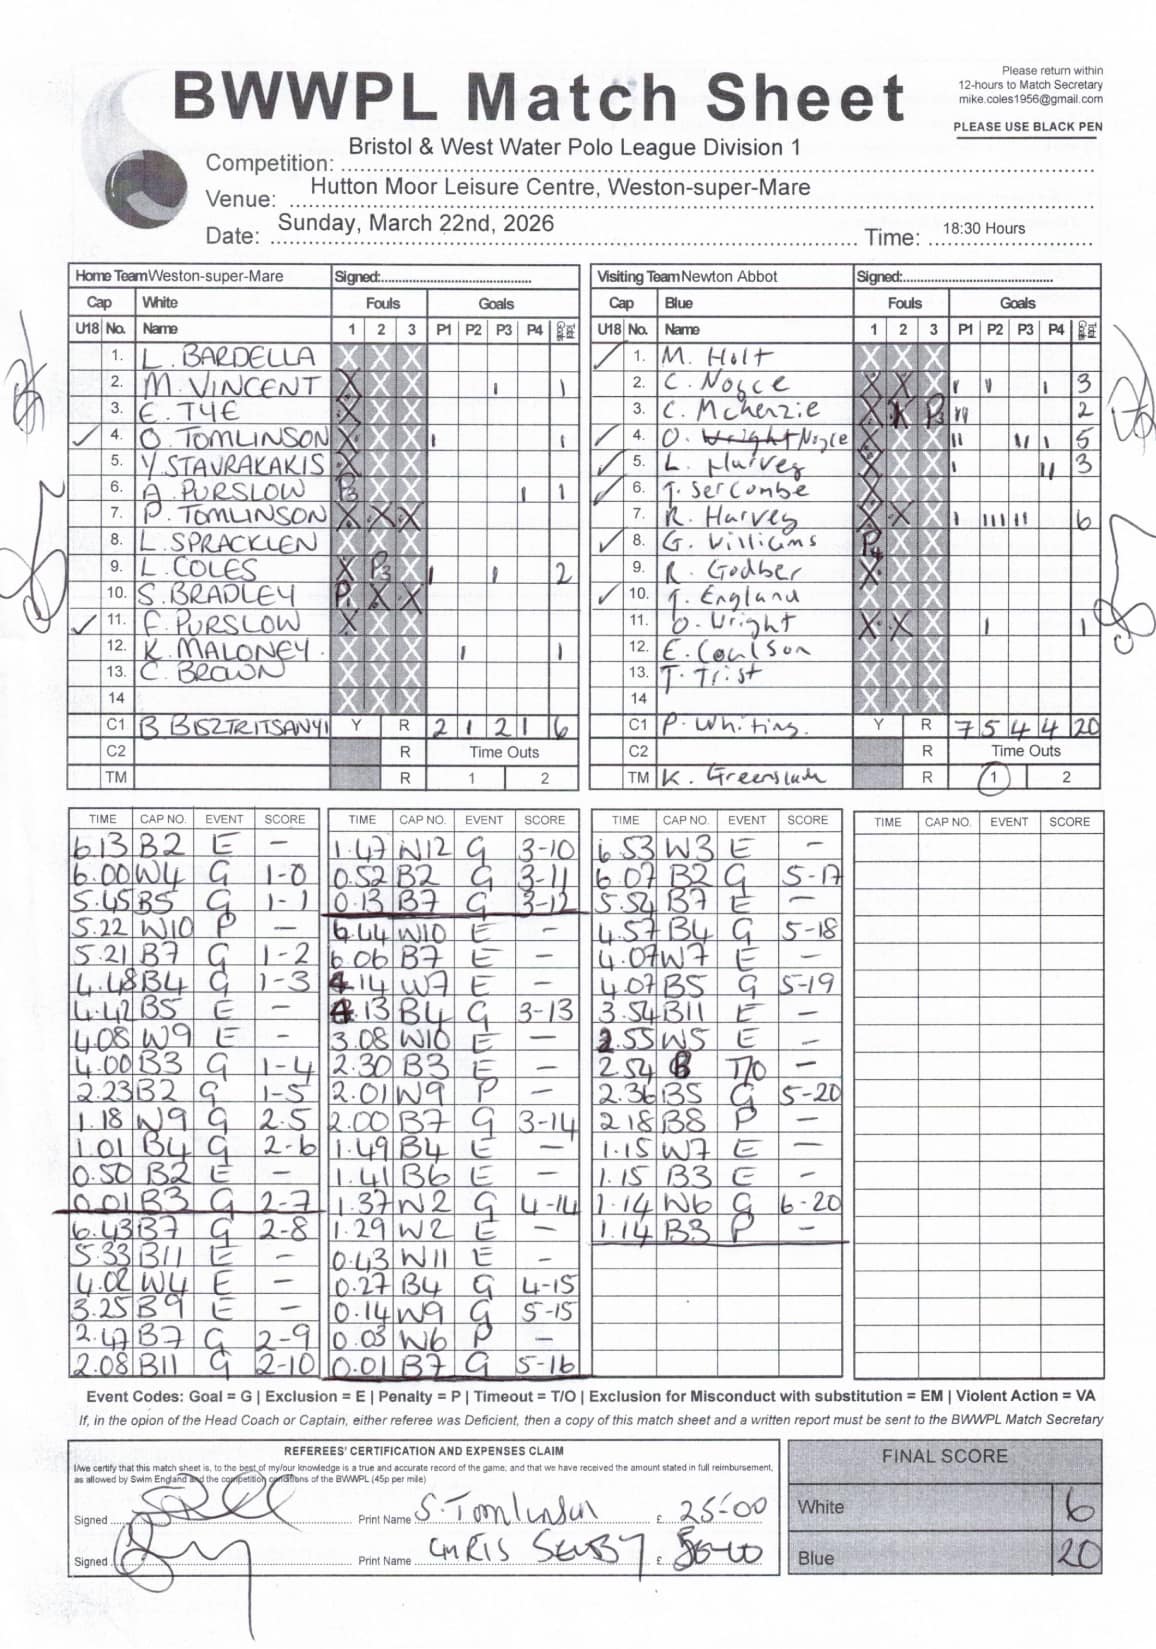 BWWPL Match Sheet
Please return within
12-hours to Match Secretary
mike.coles1956@gmail.com
PLEASE USE BLACK PEN
Competition: Bristol & West Water Polo League Division 1
Venue: Hutton Moor Leisure Centre, Weston-super-Mare
Date: Sunday, March 22nd, 2026 Time: 18:30 Hours
Home Team Weston-super-Mare Signed:
Cap White Fouls Goals
U18 No. Name 1 2 3 P1 P2 P3 P4 Total Goals
1. L. BARDELLA X X X
2. M. VINCENT X X X 1 1
3. E. TYE X X X
✓ 4. O. TOMLINSON X X X 1 1
5. Y STAVRAKAKIS X X X
6. A. PURSLOW P3 X X 1 1
7. P. TOMLINSON X X X
8. L. SPRACKLEN X X X
9. L. COLES X P3 X 1 1 2
10. S. BRADLEY P1 X X
✓ 11. F. PURSLOW X X X
12. K. MALONEY. X X X 1 1
13. C. BROWN X X X
14 X X X
C1 B BISZTRITSANYI Y R 2 1 2 1 6
C2 R Time Outs
TM R 1 2
Visiting Team Newton Abbot Signed:
Cap Blue Fouls Goals
U18 No. Name 1 2 3 P1 P2 P3 P4 Total Goals
✓ 1. M. Holt X X X
2. C. Noyce X X X 1 1 1 3
3. C. Mckenzie X X P3 11 2
✓ 4. O. Wright Noyce X X X 11 11 1 5
✓ 5. L. Harvey X X X 1 11 3
✓ 6. T. Sercombe X X X
7. R. Harvey X X X 1 111 11 6
✓ 8. G. Williams P4 X X
9. R. Godber X X X
✓ 10. T. England X X X
11. O. Wright X X X 1 1
12. E. Coulson X X X
13. T. Trist X X X
14 X X X
C1 P. Whiting. Y R 7 5 4 4 20
C2 R Time Outs
TM K. Greenslade R 1 2
TIME CAP NO. EVENT SCORE
6.13 B2 E -
6.00 W4 G 1-0
5.45 B5 G 1-1
5.22 W10 P -
5.21 B7 G 1-2
4.48 B4 G 1-3
4.42 B5 E -
4.08 W9 E -
4.00 B3 G 1-4
2.23 B2 G 1-5
1.18 W9 G 2.5
1.01 B4 G 2-6
0.50 B2 E -
0.01 B3 G 2-7
6.43 B7 G 2-8
5.33 B11 E -
4.02 W4 E -
3.25 B9 E -
2.47 B7 G 2-9
2.08 B11 G 2-10
TIME CAP NO. EVENT SCORE
1.47 W12 G 3-10
0.52 B2 G 3-11
0.13 B7 G 3-12
6.44 W10 E -
6.06 B7 E -
4.14 W7 E -
4.13 B4 G 3-13
3.08 W10 E -
2.30 B3 E -
2.01 W9 P -
2.00 B7 G 3-14
1.49 B4 E -
1.41 B6 E -
1.37 W2 G 4-14
1.29 W2 E -
0.43 W11 E -
0.27 B4 G 4-15
0.14 W9 G 5-15
0.03 W6 P -
0.01 B7 G 5-16
TIME CAP NO. EVENT SCORE
6.53 W3 E -
6.07 B2 G 5-17
5.54 B7 E -
4.57 B4 G 5-18
4.07 W7 E -
4.07 B5 G 5-19
3.54 B11 E -
2.55 W5 E -
2.54 B T/O -
2.36 B5 G 5-20
2.18 B8 P -
1.15 W7 E -
1.15 B3 E -
1.14 W6 G 6-20
1.14 B3 P -
TIME CAP NO. EVENT SCORE
Event Codes: Goal = G | Exclusion = E | Penalty = P | Timeout = T/O | Exclusion for Misconduct with substitution = EM | Violent Action = VA
If, in the opion of the Head Coach or Captain, either referee was Deficient, then a copy of this match sheet and a written report must be sent to the BWWPL Match Secretary
REFEREES' CERTIFICATION AND EXPENSES CLAIM
I/we certify that this match sheet is, to the best of my/our knowledge is a true and accurate record of the game, and that we have received the amount stated in full reimbursement,
as allowed by Swim England and the competition conditions of the BWWPL (45p per mile)
Signed Print Name S. Tomlinson £ 25-00
Signed Print Name CHRIS £
FINAL SCORE
White 6
Blue 20